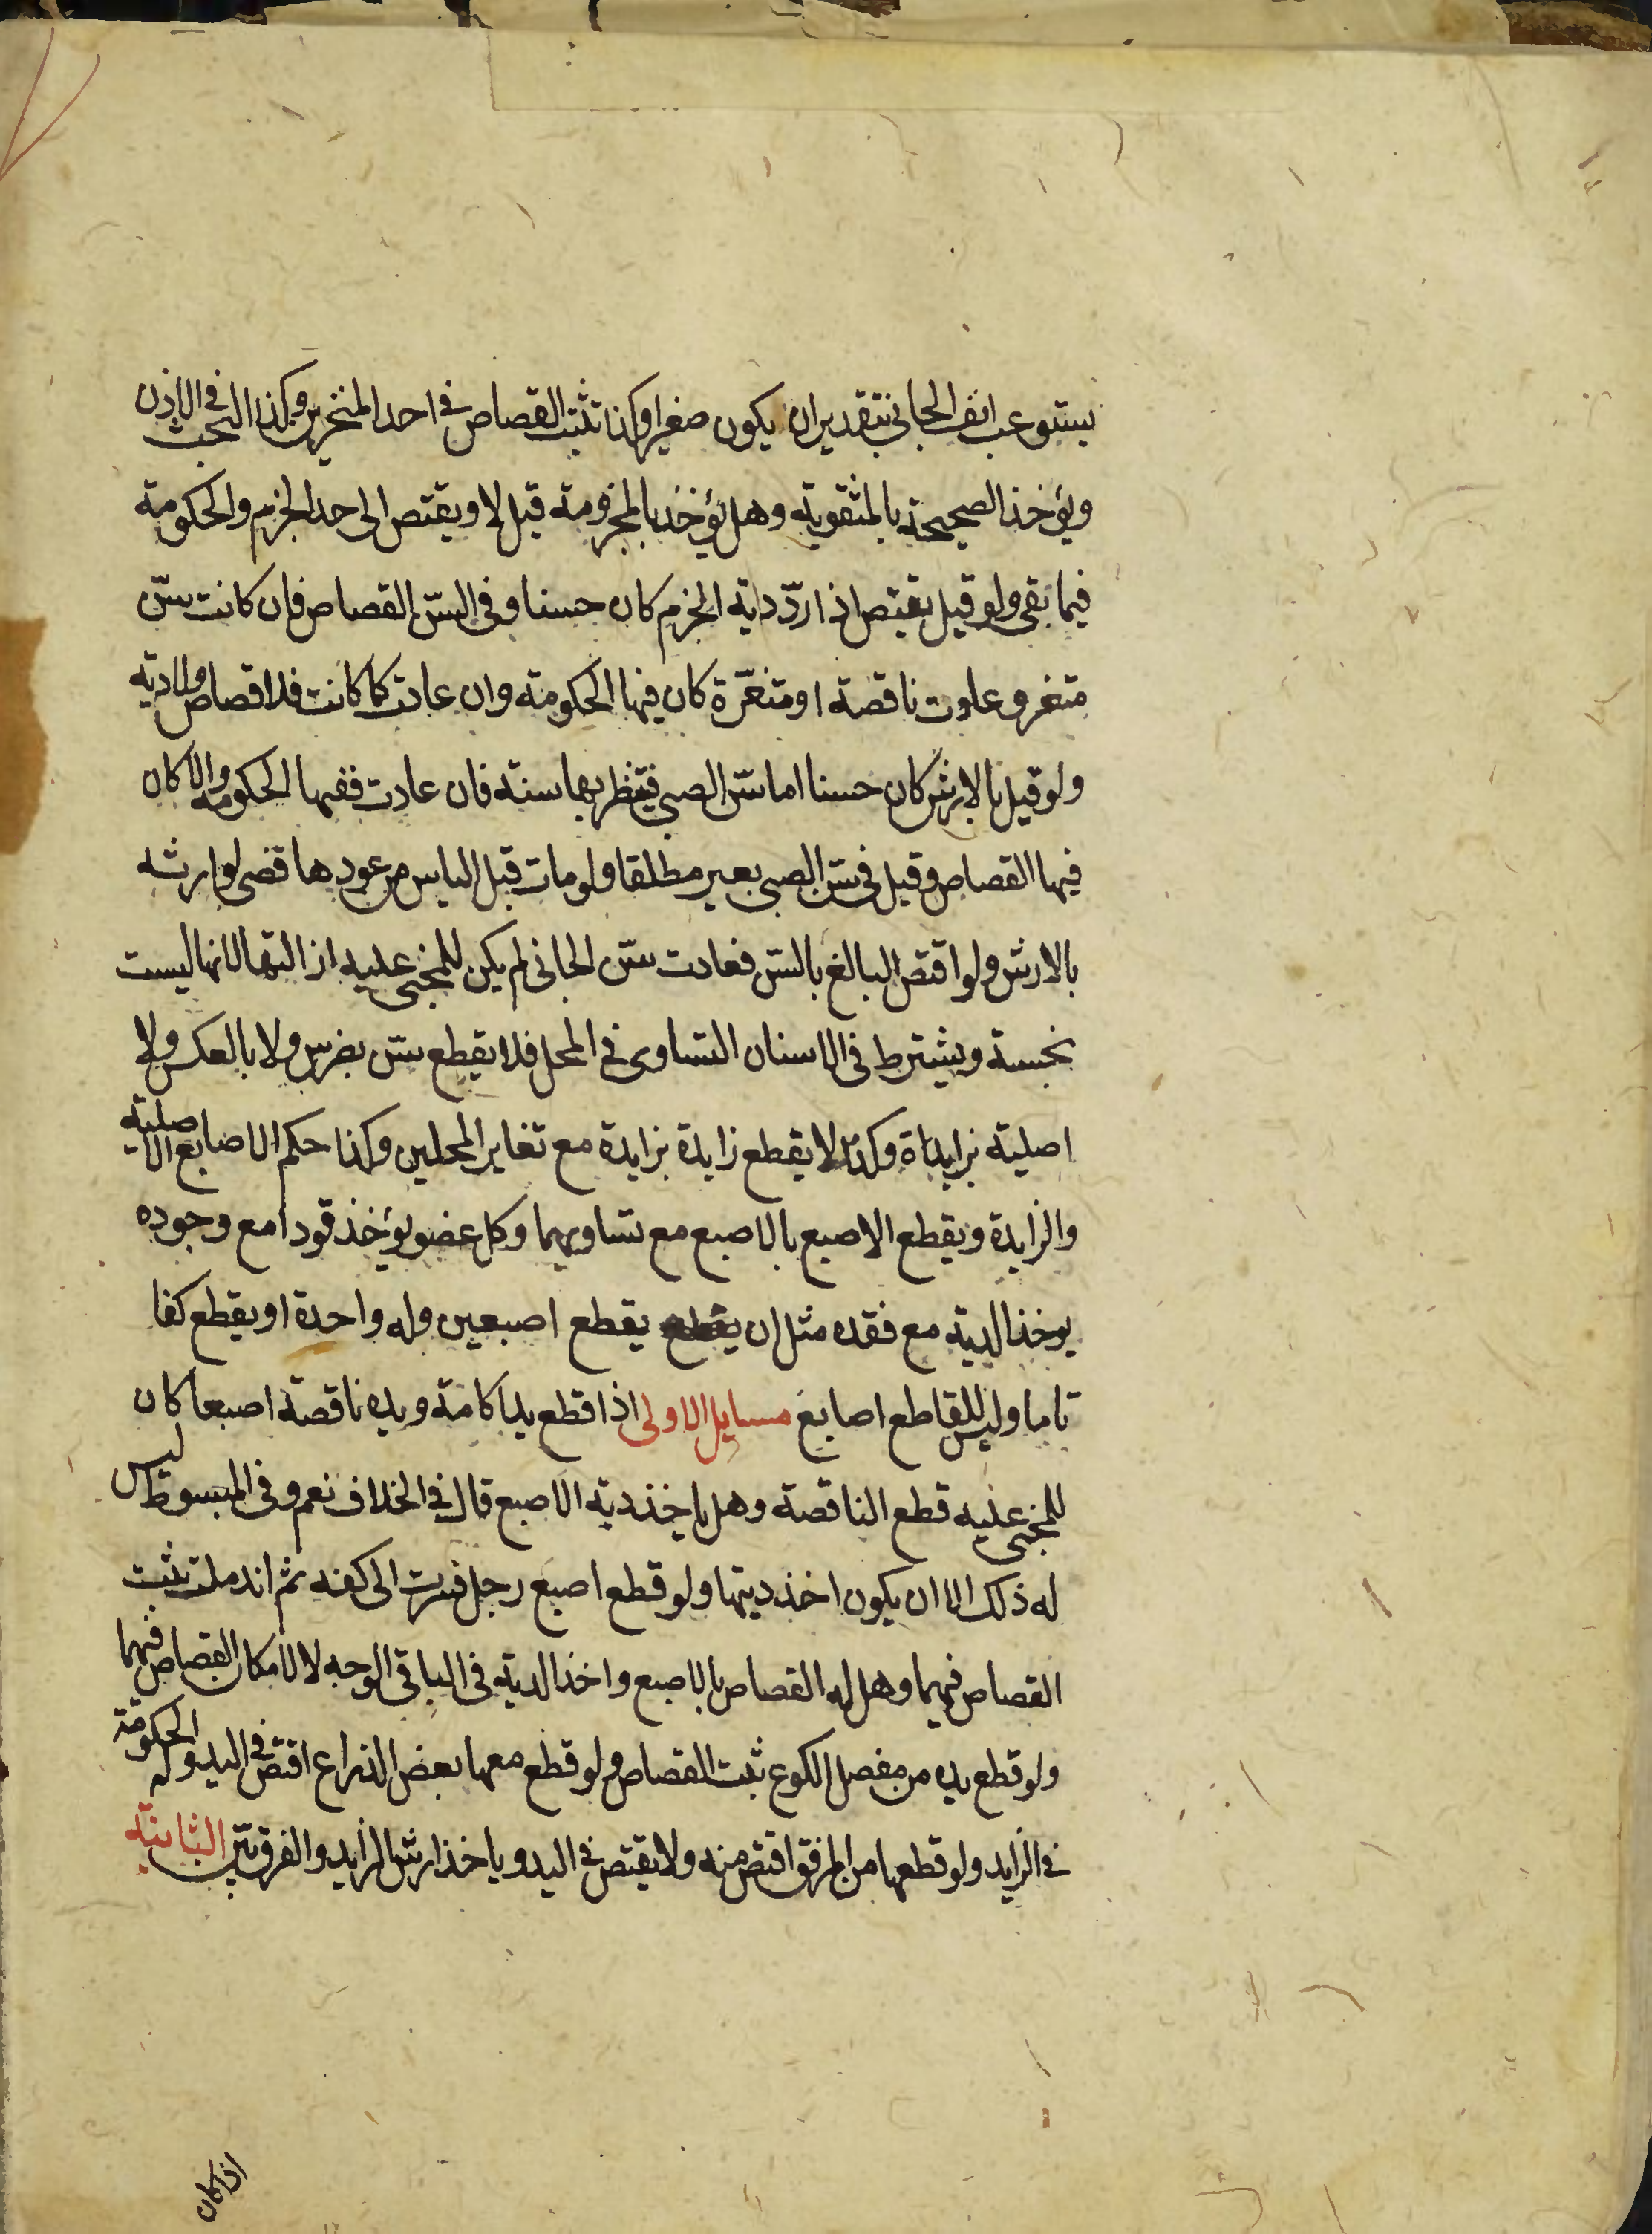 يستوعب انف الجاني بتقدير ان يكون صغيرا وكذا تثبت القصاص في احد المنخرين وكذا البحث في الاذن
ويؤخذ الصحيحة بالمثقوبة وهل يؤخذ بالمخرومة قيل لا ويقتص الى حد الخرم والحكومة
فيما بقي ولو قيل يقتص اذا ردّ دية الخرم كان حسنا وفي السنّ القصاص فان كانت سنّ
مثغر وعادت ناقصة او متغيّرة كان فيها الحكومة وان عادت كما كانت فلا قصاص ولا دية
ولو قيل بالارش كان حسنا اما سنّ الصبي فينتظر بها سنة فان عادت ففيها الحكومة والا كان
فيها القصاص وقيل في سنّ الصبي بعير مطلقا ولو مات قبل الياس من عودها قضى لوارثه
بالارش ولو اقتص البالغ بالسنّ فعادت سنّ الجاني لم يكن للمجني عليه ازالتها لانها ليست
بجسنة ويشترط في الاسنان التساوي في المحل فلا يقطع سنّ بضرس ولا بالعكس ولا
اصلية بزايدة وكذا لا يقطع زايدة بزايدة مع تغاير المحلين وكذا حكم الاصابع الاصلية
والزايدة ويقطع الاصبع بالاصبع مع تساويهما وكل عضو يؤخذ قودا مع وجوده
يوخذ الدية مع فقده مثل ان يقطع اصبعين وله واحدة او يقطع كفا
تاما وليس للقاطع اصابع مسايل الاولى اذا قطع يدا كامة ويده ناقصة اصبعا كان
للمجني عليه قطع الناقصة وهل ياخذ دية الاصبع قال في الخلاف نعم وفي المبسوط ليس
له ذلك الا ان يكون اخذ ديتها ولو قطع اصبع رجل فسرت الى كفه ثم اندملت ثبت
القصاص فيهما وهل له القصاص بالاصبع واخذ الدية في الباقي الوجه لا لامكان القصاص فيهما
ولو قطع يده من مفصل الكوع ثبت القصاص ولو قطع معها بعض الذراع اقتص في اليد وله الحكومة
في الزايد ولو قطعها من المرفق اقتص منه ولا يقتص في اليد وياخذ ارش الزايد والفرق بيّن الثانية
اذا كان